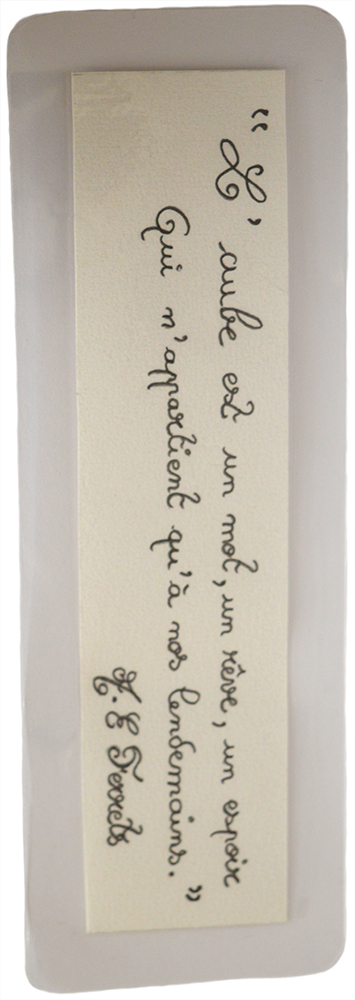 “ L'aube est un mot, un rêve, un espoir
Qui n'appartient qu'à nos lendemains. ”